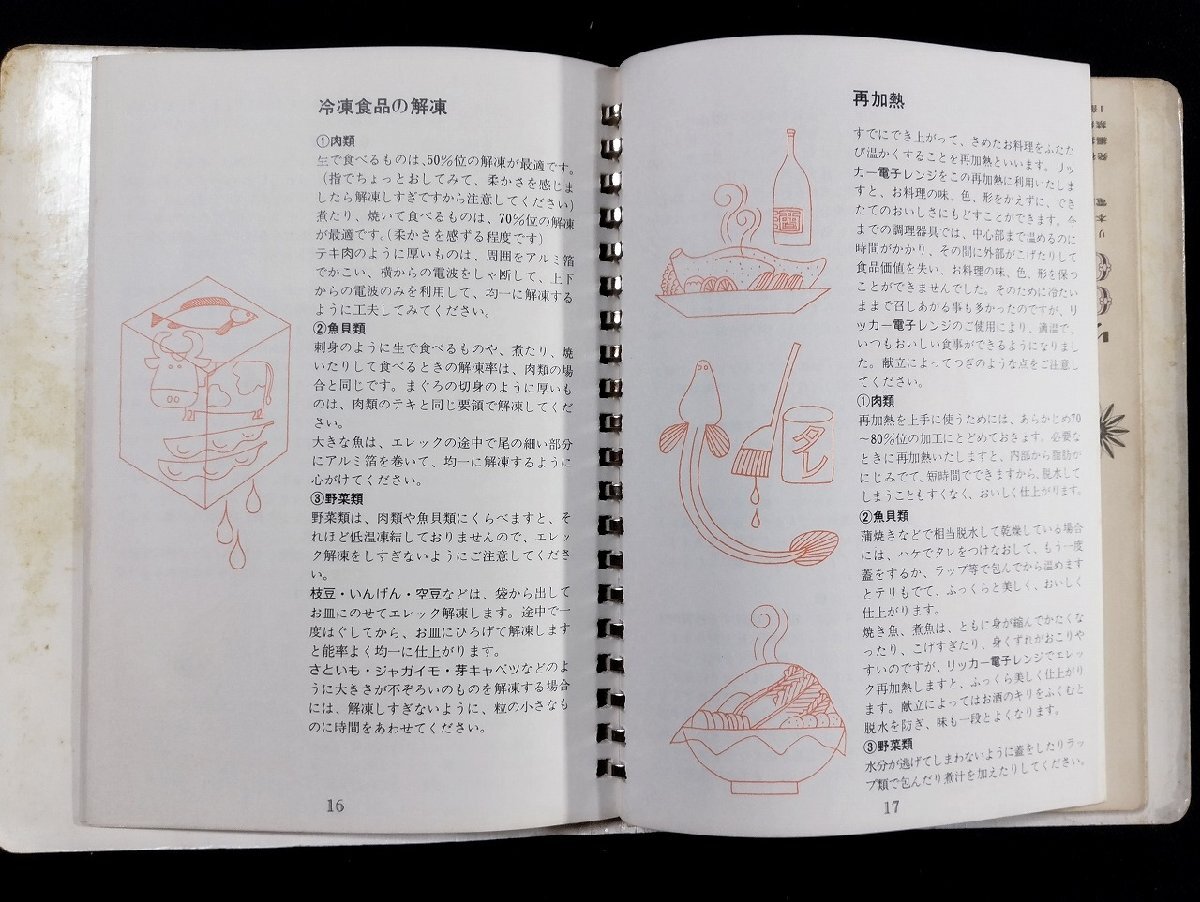 冷凍食品の解凍
①肉類
生で食べるものは、50%位の解凍が最適です。
(指でちょっとおしてみて、柔かさを感じま
したら解凍しすぎですから注意してください)
煮たり、焼いて食べるものは、70%位の解凍
が最適です。(柔かさを感ずる程度です)
テキ肉のように厚いものは、周囲をアルミ箔
でかこい、横からの電波をしゃ断して、上下
からの電波のみを利用して、均一に解凍する
ように工夫してみてください。
②魚貝類
刺身のように生で食べるものや、煮たり、焼
いたりして食べるときの解凍率は、肉類の場
合と同じです。まぐろの切身のように厚いも
のは、肉類のテキと同じ要領で解凍してくだ
さい。
大きな魚は、エレックの途中で尾の細い部分
にアルミ箔を巻いて、均一に解凍するように
心がけてください。
③野菜類
野菜類は、肉類や魚貝類にくらべますと、そ
れほど低温凍結しておりませんので、エレッ
ク解凍をしすぎないようにご注意してくださ
い。
枝豆・いんげん・空豆などは、袋から出して
お皿にのせてエレック解凍します。途中で一
度はぐしてから、お皿にひろげて解凍します
と能率よく均一に仕上がります。
さといも・ジャガイモ・芽キャベツなどのよ
うに大きさが不ぞろいのものを解凍する場合
には、解凍しすぎないように、粒の小さなも
のに時間をあわせてください。
16
再加熱
すでにでき上がって、さめたお料理をふたた
び温かくすることを再加熱といいます。リッ
カー電子レンジをこの再加熱に利用いたしま
すと、お料理の味、色、形をかえずに、でき
たてのおいしさにもどすことができます。今
までの調理器具では、中心部まで温めるのに
時間がかかり、その間に外部がこげたりして
食品価値を失い、お料理の味、色、形を保つ
ことができませんでした。そのために冷たい
ままで召しあがる事も多かったのですが、リ
ッカー電子レンジのご使用により、適温で、
いつもおいしい食事ができるようになりまし
た。献立によってつぎのような点をご注意し
てください。
①肉類
再加熱を上手に使うためには、あらかじめ70
~80%位の加工にとどめておきます。必要な
ときに再加熱いたしますと、内部から脂肪が
にじみでて、短時間でできますから、脱水して
しまうこともすくなく、おいしく仕上がります。
②魚貝類
蒲焼きなどで相当脱水して乾燥している場合
には、ハケでタレをつけなおして、もう一度
蓋をするか、ラップ等で包んでから温めます
とテリもでて、ふっくらと美しく、おいしく
仕上がります。
焼き魚、煮魚は、ともに身が縮んでかたくな
ったり、こげすぎたり、身くずれがおこりや
すいのですが、リッカー電子レンジでエレッ
ク再加熱しますと、ふっくら美しく仕上がり
ます。献立によってはお酒のキリをふくむと
脱水を防ぎ、味も一段とよくなります。
③野菜類
水分が逃げてしまわないように蓋をしたりラッ
プ類で包んだり煮汁を加えたりしてください。
17
タレ